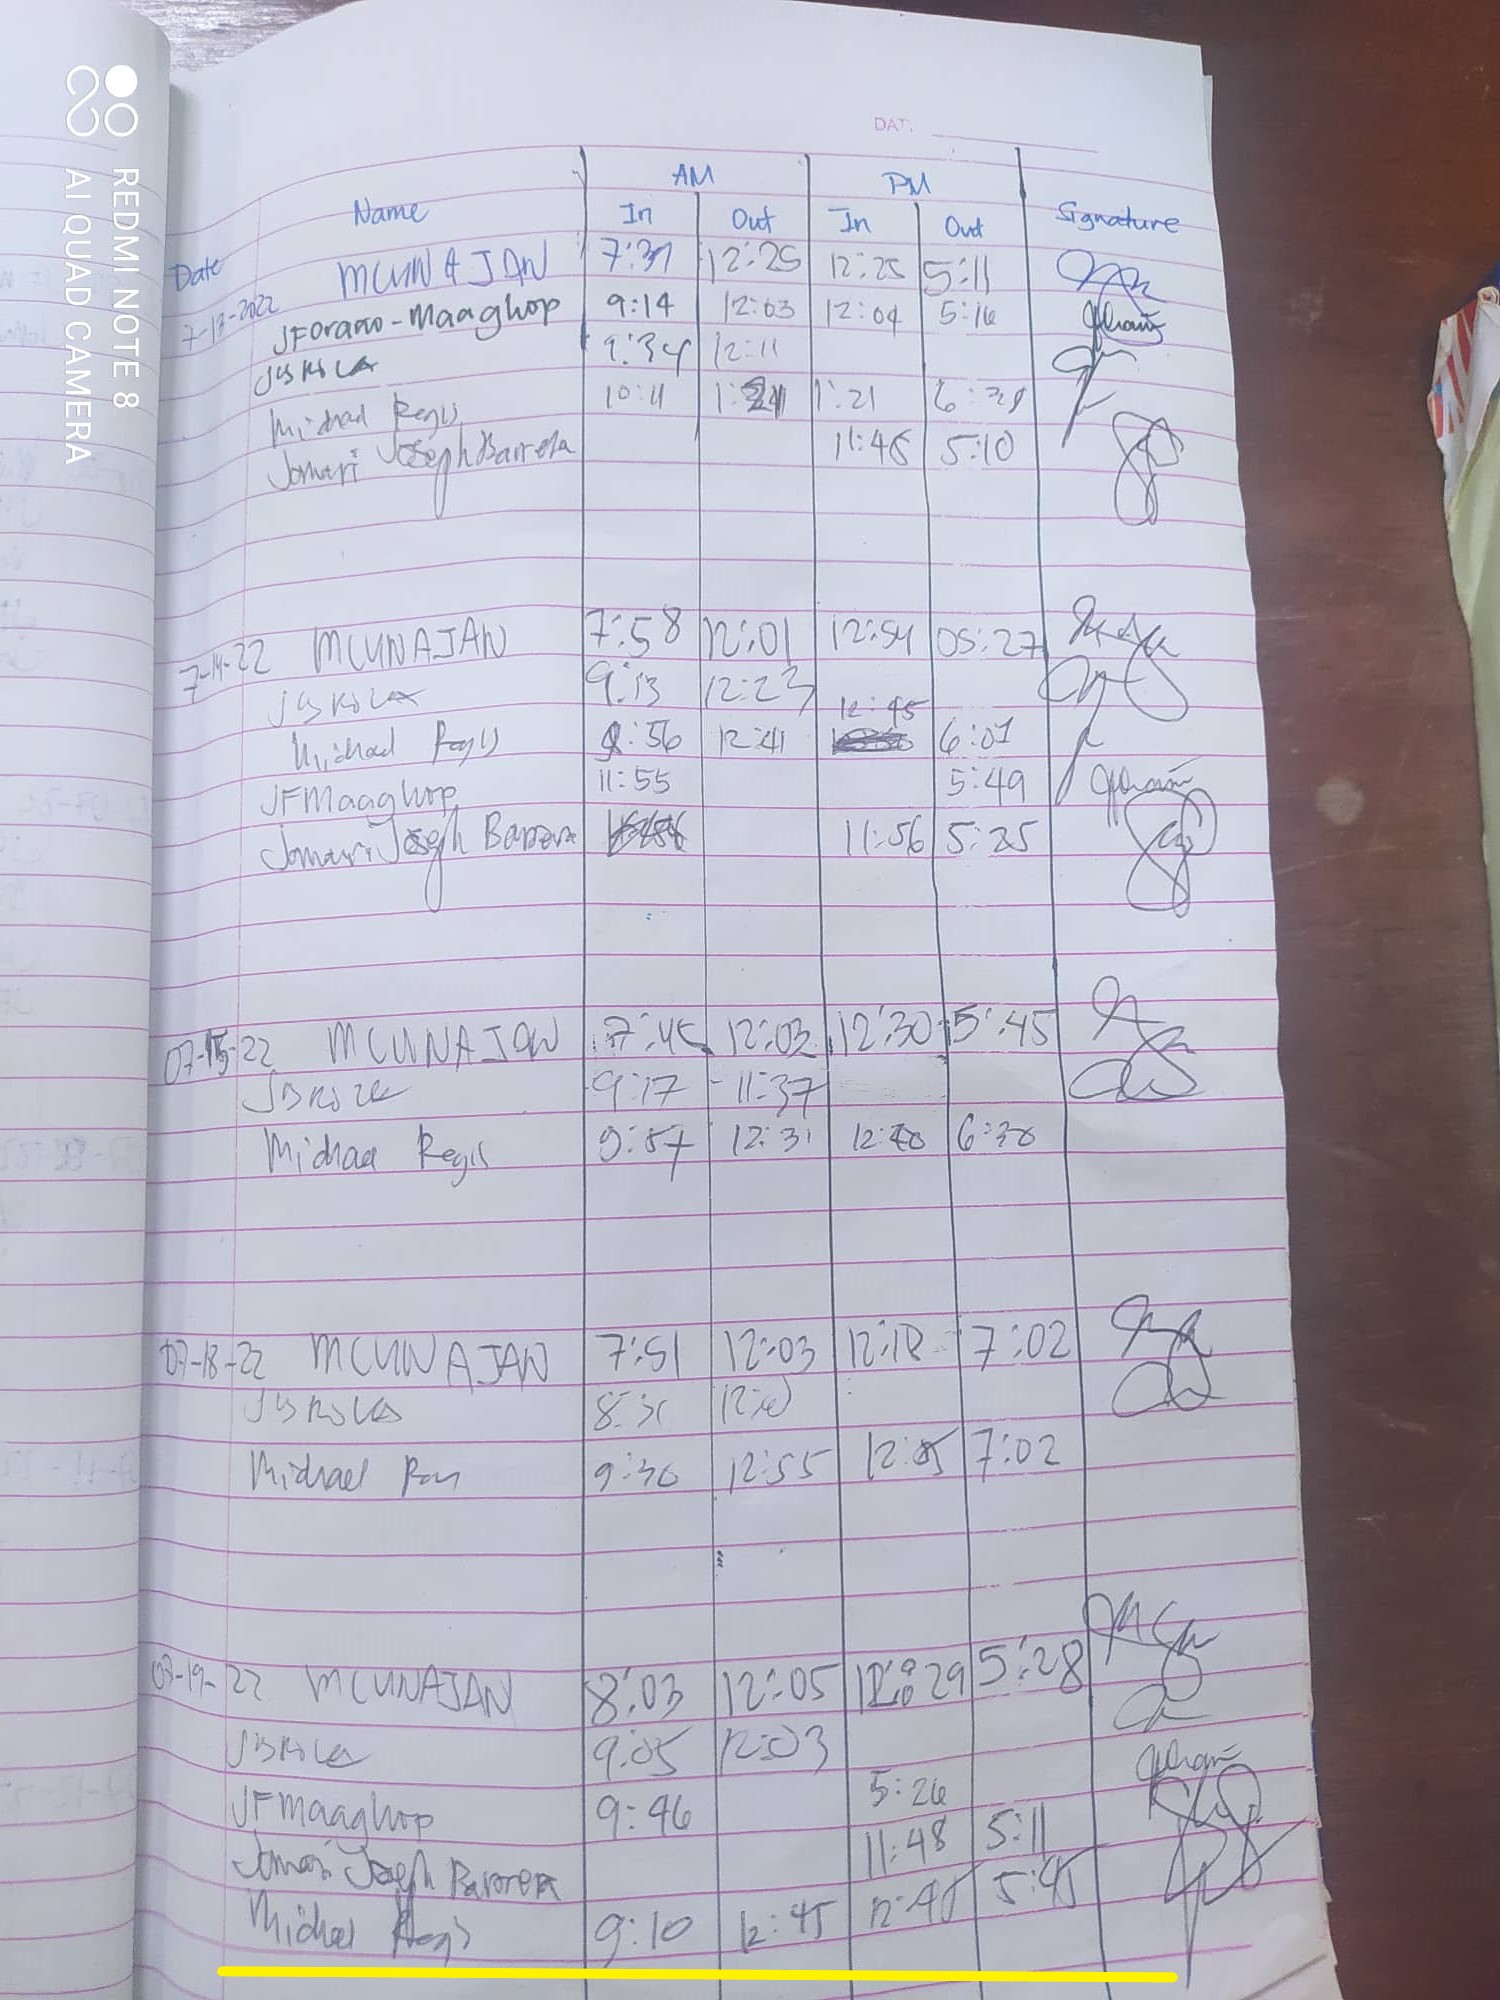 REDMI NOTE 8
AI QUAD CAMERA
DATE
AM PM
Date Name In Out In Out Signature
7-13-2022 MCUNAJAN 7:37 12:25 12:25 5:11
JFOrano-Maaghop 9:14 12:03 12:04 5:16
9:34 12:11
Michael Regis 10:11 1:21 1:21 6:38
Jomari Joseph Barrera 11:45 5:10
7-14-22 MCUNAJAN 7:58 12:01 12:54 05:27
9:13 12:23
Michael Regis 8:56 12:41 12:45 6:07
JFMaaghop 11:55 5:49
Jomari Joseph Barrera 11:56 5:25
07-15-22 MCUNAJAN 7:45 12:03 12:30 5:45
9:17 11:37
Michael Regis 9:57 12:31 6:30
07-18-22 MCUNAJAN 7:51 12:03 12:12 7:02
8:31
Michael 9:30 12:55 12:05 7:02
07-19-22 MCUNAJAN 8:03 12:05 12:29 5:28
9:05 12:03
JFMaaghop 9:46 5:26
Jomari Joseph Barrera 11:48 5:11
Michael Regis 9:10 12:45 12:45 5:45